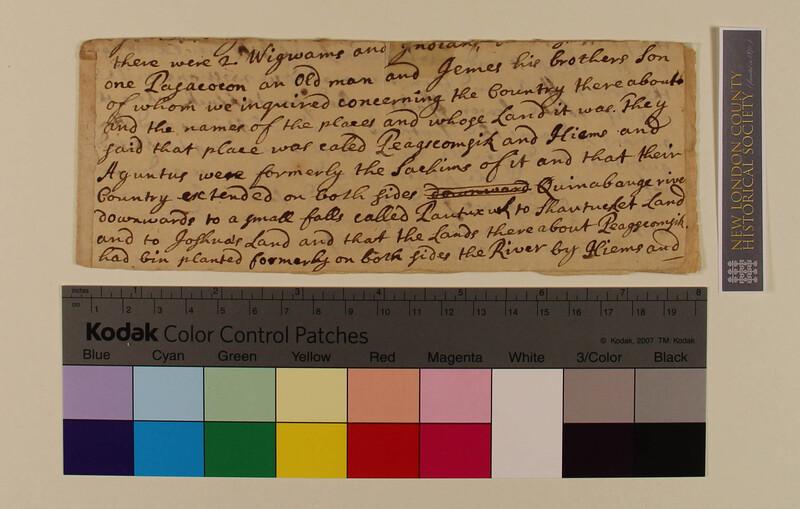 there were 2 Wigwams and Indians,
one Pagacocon an Old man and Jemes his brothers Son
of whom we inquired concerning the Country there about
and the names of the places and whose Land it was. They
said that place was caled Peagscomsik and Hiems and
Aguntus were formerly the Sachims of it and that their
Country extended on both sides downward Quinabauge river
downwards to a small falls called Pautuxuk to Shautucket Land
and to Joshua's Land and that the Lands there about Peagscomsik
had bin planted formerly on both sides the River by Hiems and
NEW LONDON COUNTY
HISTORICAL SOCIETY
inches 1 2 3 4 5 6 7 8
cm 1 2 3 4 5 6 7 8 9 10 11 12 13 14 15 16 17 18 19
Kodak Color Control Patches
© Kodak, 2007 TM: Kodak
Blue Cyan Green Yellow Red Magenta White 3/Color Black